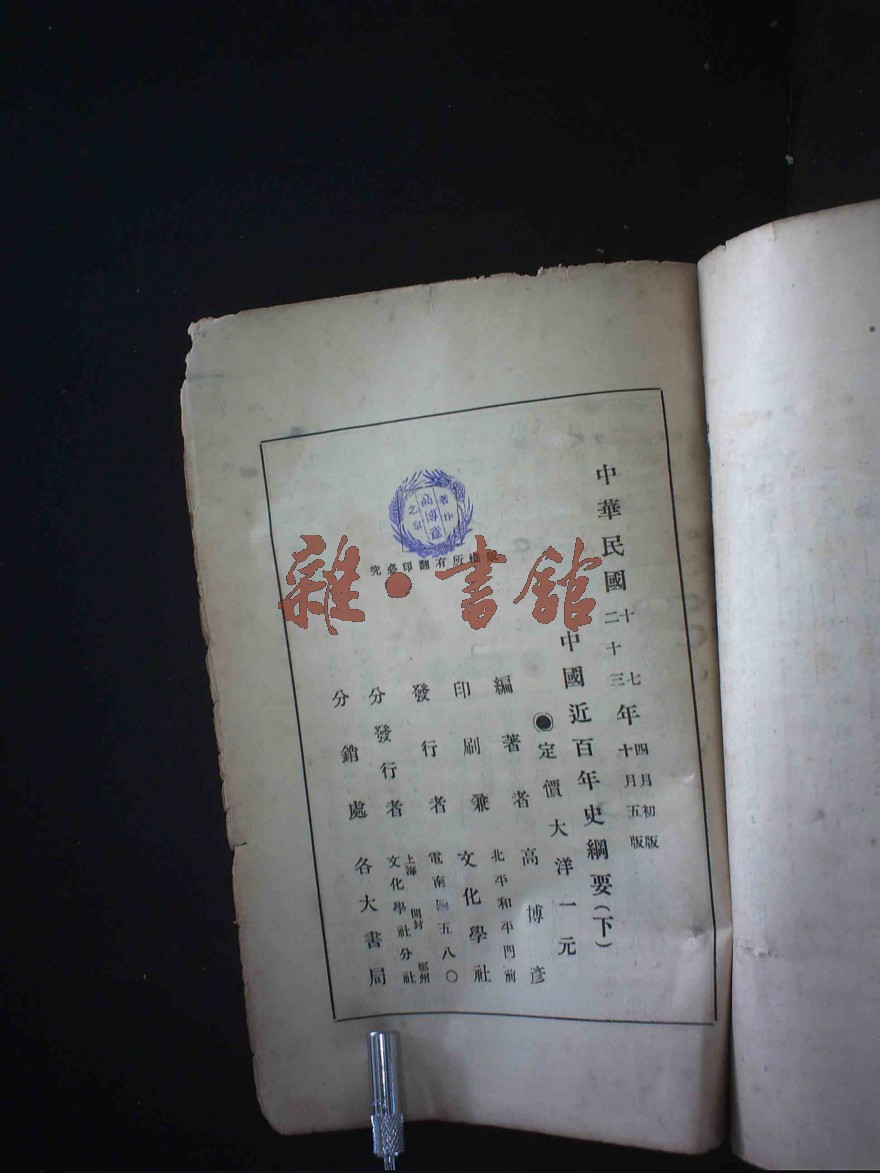 中華民國
十七年四月初版
二十三年十月五版
中國近百年史綱要(下)
●定價大洋一元
編著者 高博彦
北平和平門前
印刷兼發行者 文化學社
電南四五八〇
分發行者 上海 開封 鄭州 文化學社分社
分銷處 各大書局
版權所有翻印必究
著作
高博彦
之章
雜·書館